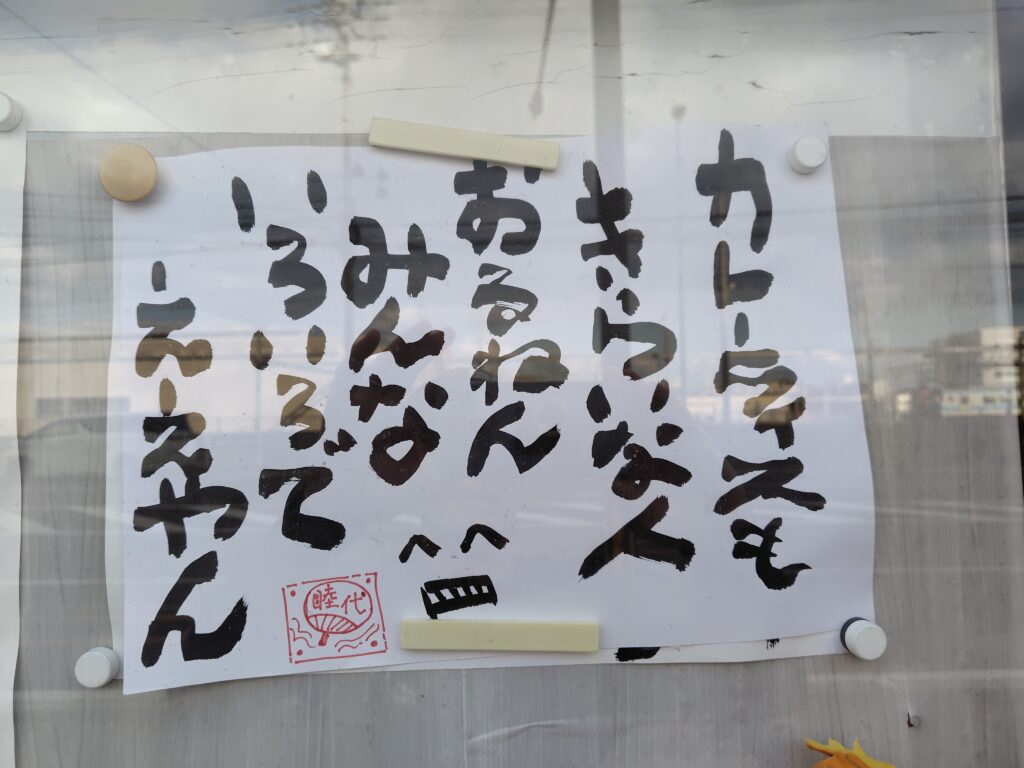 カレーライスも
きらいな人
おるねん
みんな
いろいろで
ええやん
睦代